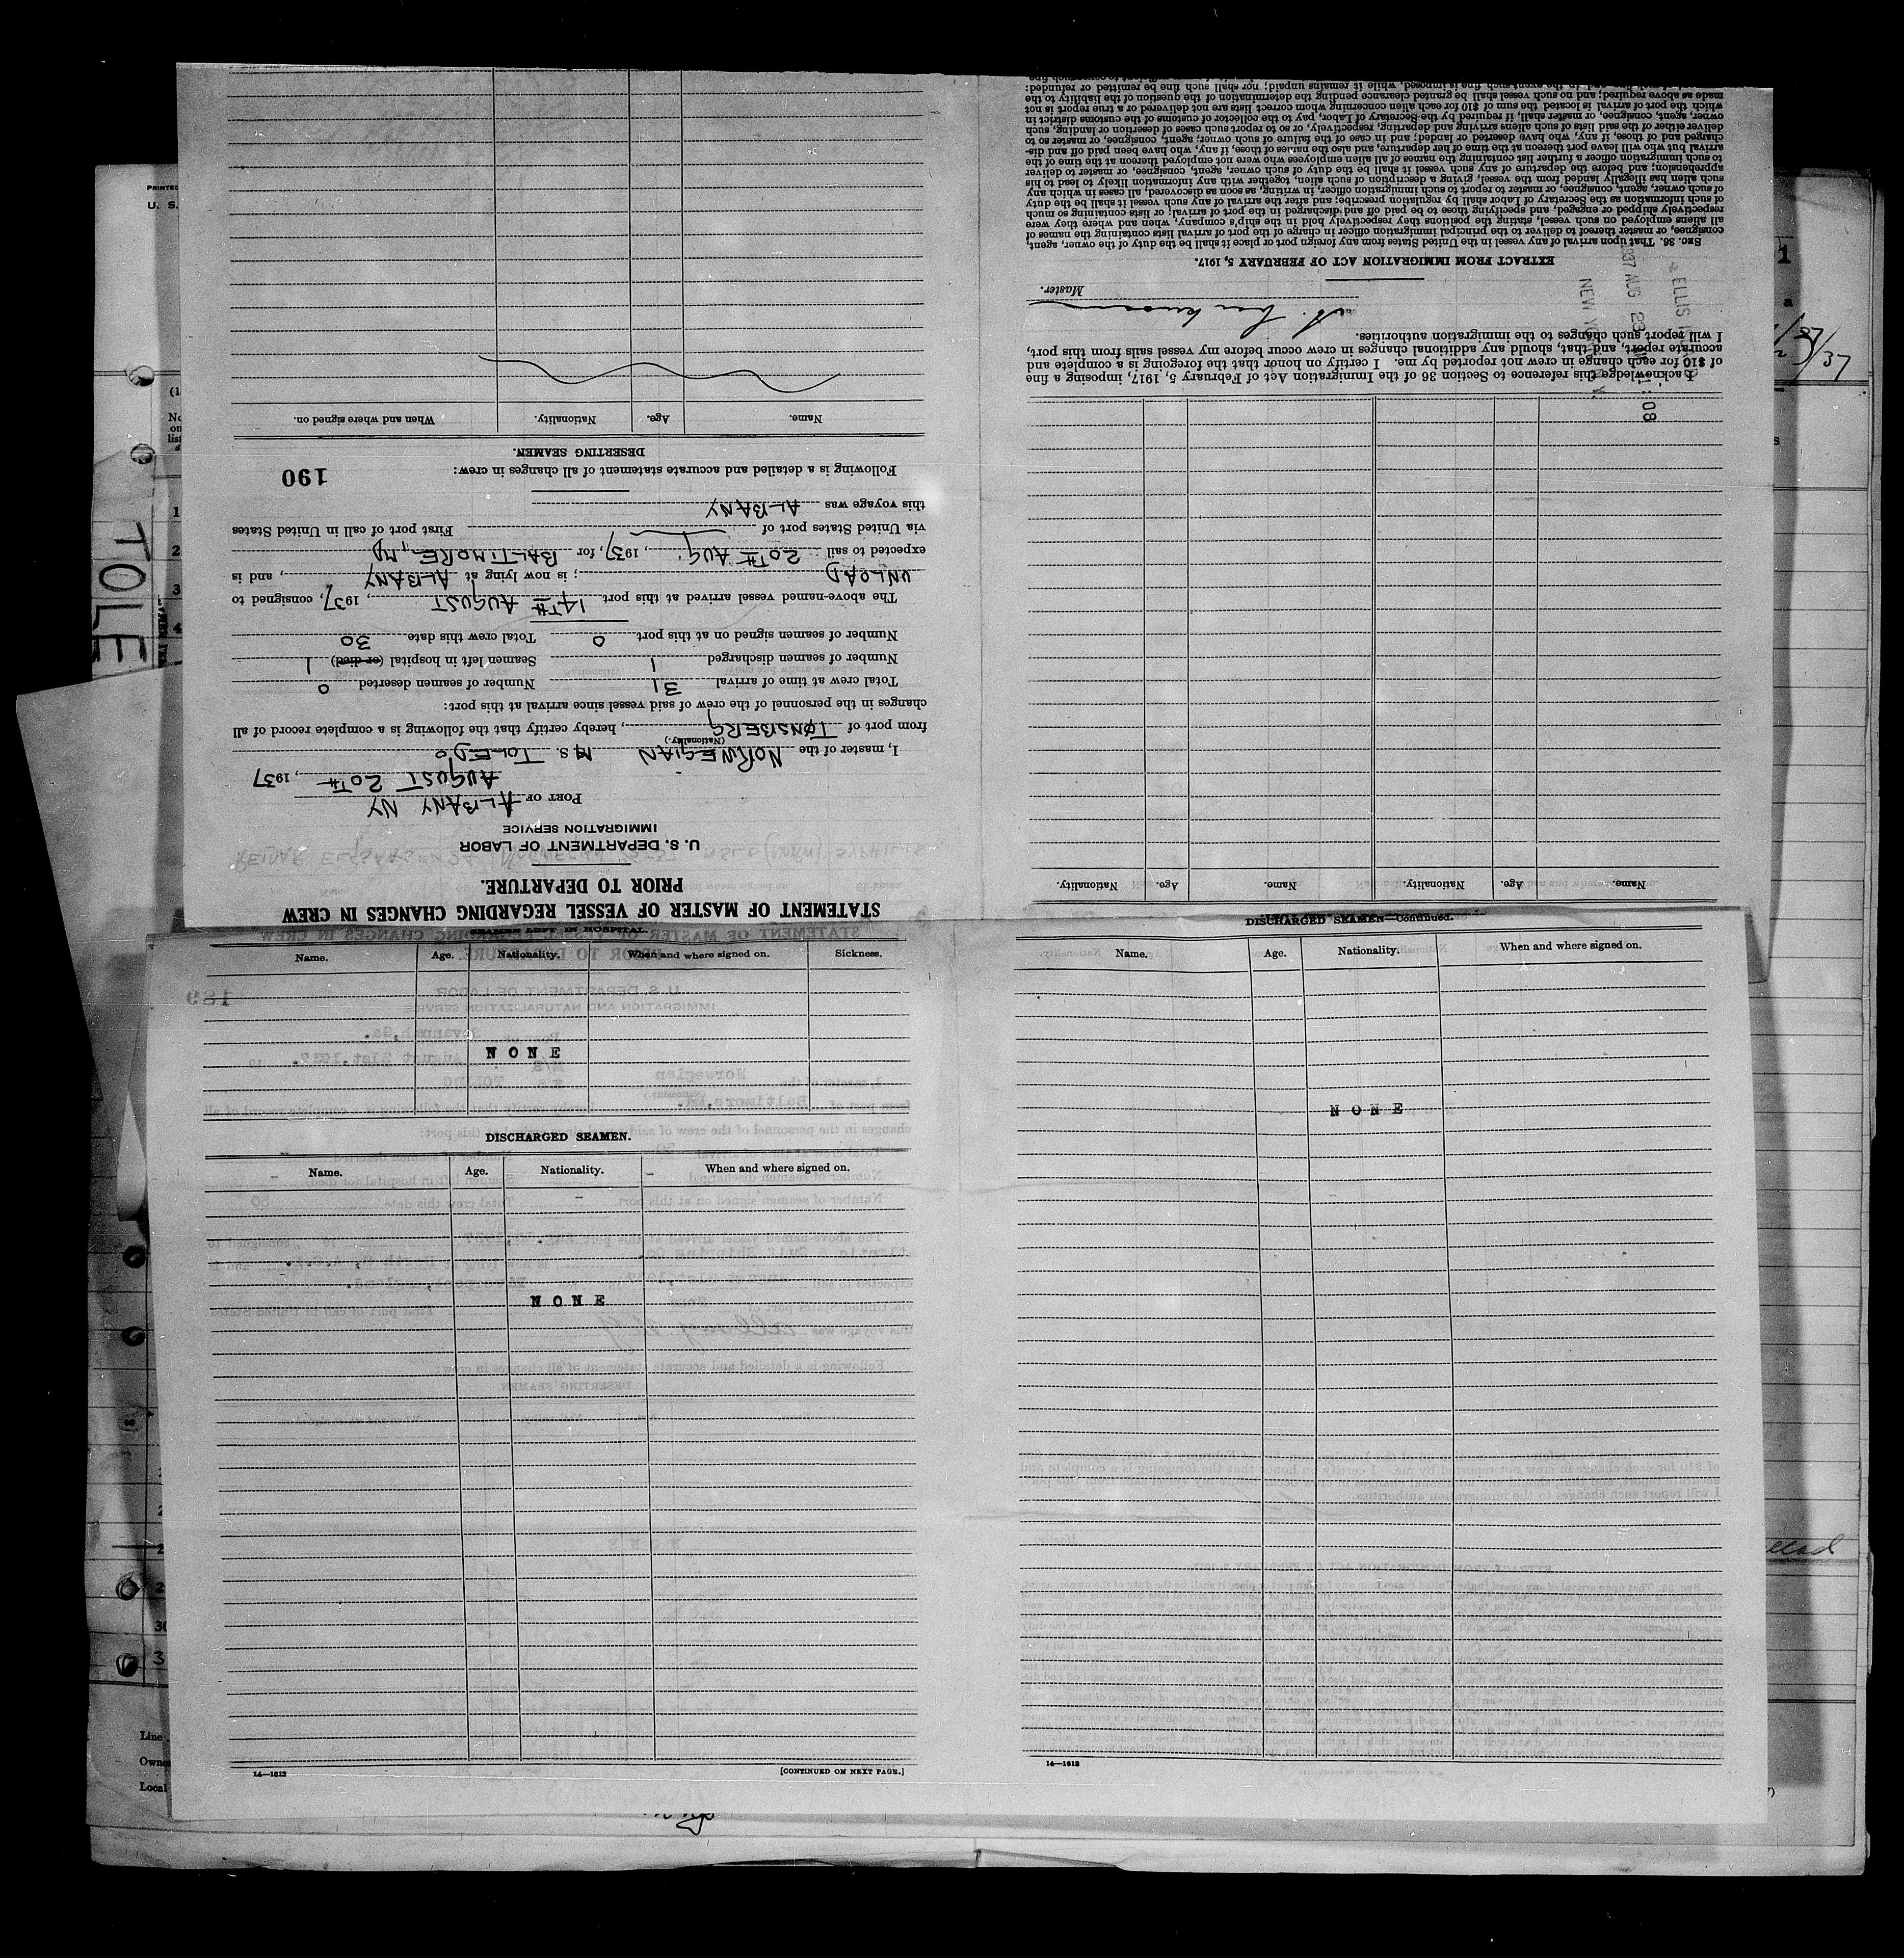 STATEMENT OF MASTER OF VESSEL REGARDING CHANGES IN CREW
PRIOR TO DEPARTURE.
U. S. DEPARTMENT OF LABOR
IMMIGRATION SERVICE
PORT OF ALBANY NY
AUGUST 20TH, 1937
I, master of the NORWEGIAN M. S. TOLEDO
(Nationality.)
from port of TØNSBERG, hereby certify that the following is a complete record of all
changes in the personnel of the crew of said vessel since arrival at this port:
Total crew at time of arrival 31 Number of seamen deserted 0
Number of seamen discharged 1 Seamen left in hospital (or died) 1
Number of seamen signed on at this port 0 Total crew this date 30
The above-named vessel arrived at this port 14TH AUGUST, 1937, consigned to
UNLOAD; is now lying at ALBANY, and is
expected to sail 20TH AUG., 1937, for BALTIMORE, MD
via United States port of First port of call in United States
this voyage was ALBANY
Following is a detailed and accurate statement of all changes in crew:
190
DESERTING SEAMEN.
Name. Age. Nationality. When and where signed on.
Name. Age. Nationality. Name. Age. Nationality.
I acknowledge this reference to Section 36 of the Immigration Act of February 5, 1917, imposing a fine
of $10 for each change in crew not reported by me. I certify on honor that the foregoing is a complete and
accurate report, and that, should any additional changes in crew occur before my vessel sails from this port,
I will report such changes to the immigration authorities.
Master.
EXTRACT FROM IMMIGRATION ACT OF FEBRUARY 5, 1917.
SEC. 36. That upon arrival of any vessel in the United States from any foreign port or place it shall be the duty of the owner, agent,
consignee, or master thereof to deliver to the principal immigration officer in charge of the port of arrival lists containing the names of
all aliens employed on such vessel, stating the positions they respectively hold in the ship's company, when and where they were
respectively shipped or engaged, and specifying those to be paid off and discharged in the port of arrival; or lists containing so much
of such information as the Secretary of Labor shall by regulation prescribe; and after the arrival of any such vessel it shall be the duty
of such owner, agent, consignee, or master to report to such immigration officer, in writing, as soon as discovered, all cases in which any
such alien has illegally landed from the vessel, giving a description of such alien, together with any information likely to lead to his
apprehension; and before the departure of any such vessel it shall be the duty of such owner, agent, consignee, or master to deliver
to such immigration officer a further list containing the names of all alien employees who were not employed thereon at the time of the
arrival but who will leave port thereon at the time of her departure, and also the names of those, if any, who have been paid off and dis-
charged and of those, if any, who have deserted or landed; and in case of the failure of such owner, agent, consignee, or master so to
deliver either of the said lists of such aliens arriving and departing, respectively, or so to report such cases of desertion or landing, such
owner, agent, consignee, or master shall, if required by the Secretary of Labor, pay to the collector of customs of the customs district in
which the port of arrival is located the sum of $10 for each alien concerning whom correct lists are not delivered or a true report is not
made as above required; and no such vessel shall be granted clearance pending the determination of the question of the liability to the
ELLIS
1937 AUG 23
NEW YORK
TOLE
SEAMEN LEFT IN HOSPITAL
Name. Age. Nationality. When and where signed on. Sickness.
NONE
DISCHARGED SEAMEN.
Name. Age. Nationality. When and where signed on.
NONE
14—1613 [CONTINUED ON NEXT PAGE.]
DISCHARGED SEAMEN—Continued.
Name. Age. Nationality. When and where signed on.
NONE
14—1613
Line
Local